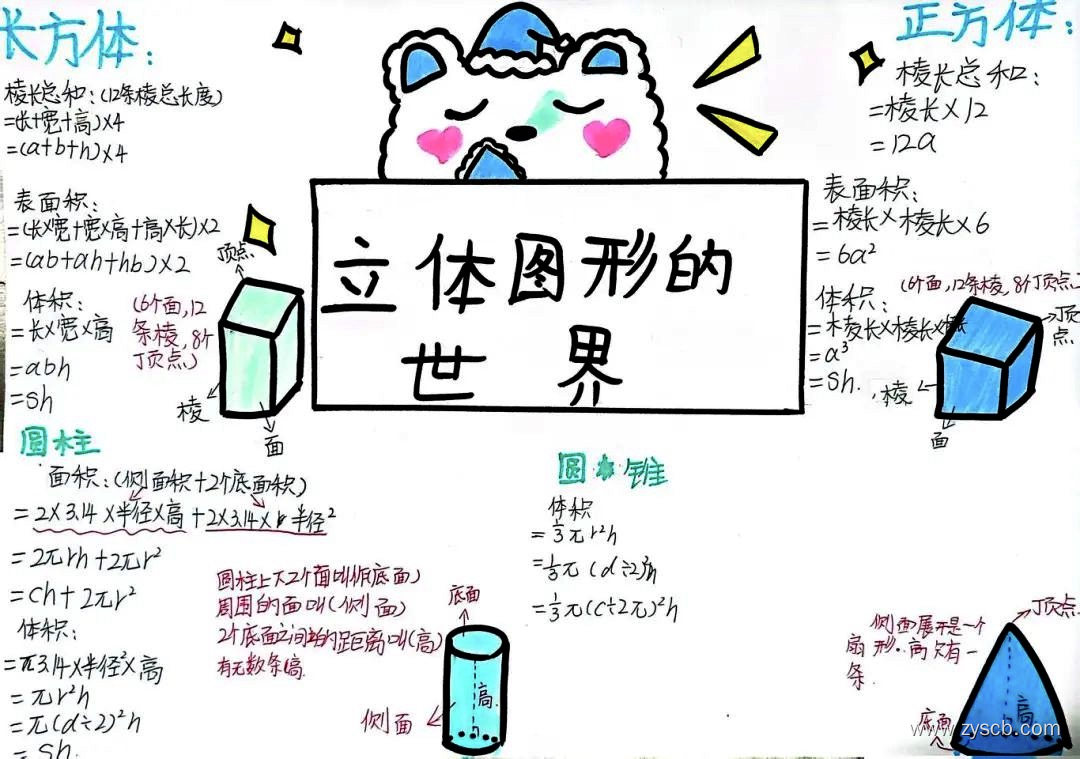 长方体:
棱长总和:(12条棱总长度)
=(长+宽+高)×4
=(a+b+h)×4
表面积:
=(长×宽+宽×高+高×长)×2
=(ab+ah+hb)×2
体积:
=长×宽×高
=abh
=sh
(6个面,12
条棱,8个
顶点)
顶点
棱
面
立体图形的
世界
正方体:
棱长总和:
=棱长×12
=12a
表面积:
=棱长×棱长×6
=6a²
体积:
=棱长×棱长×棱长
=a³
=sh.
(6个面,12条棱,8个顶点)
顶点
棱
面
圆柱
面积:(侧面积+2个底面积)
=2×3.14×半径×高+2×3.14×半径²
=2πrh+2πr²
=ch+2πr²
体积:
=π3.14×半径²×高
=πr²h
=π(d÷2)²h
=sh.
圆柱上下2个面叫作(底面)
周围的面叫(侧面)
2个底面之间的距离叫(高)
有无数条高.
底面
高.
侧面
圆锥
体积
=⅓πr²h
=⅓π(d÷2)²h
=⅓π(c÷2π)²h
侧面展开是一个
扇形.高只有一
条.
顶点
高
底面
www.zyscb.com